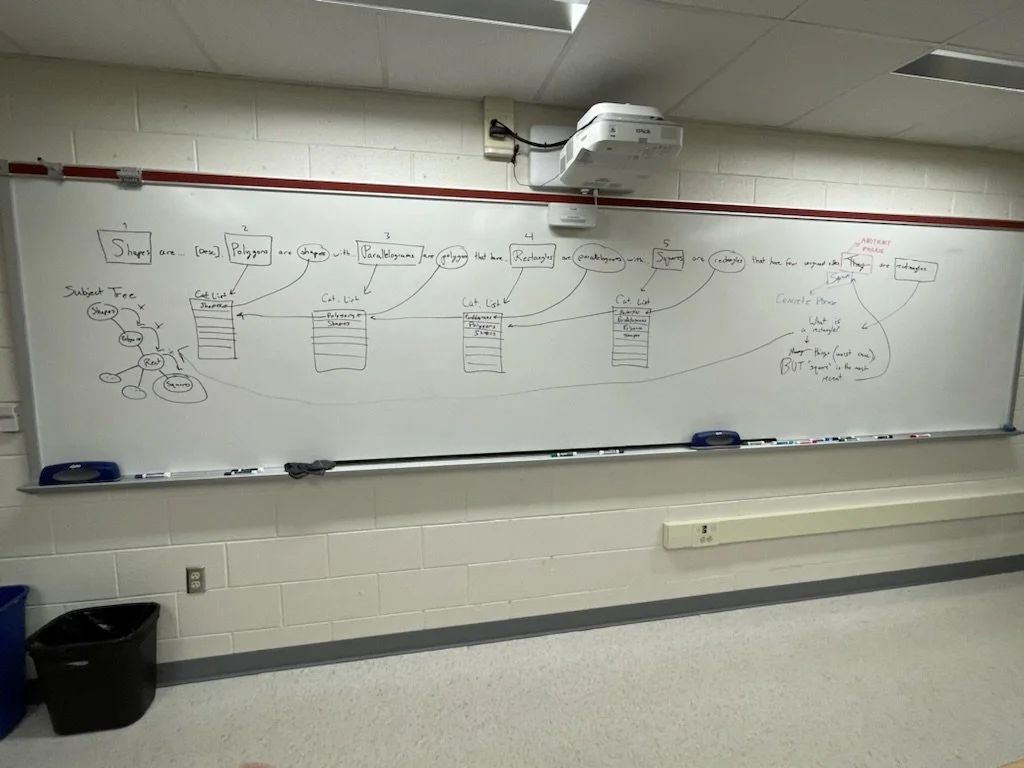 1 2 3 4 5
Shapes are... [Desc]. Polygons are shapes with... Parallelograms are polygon that have.. Rectangles are parallelograms with Squares are rectangles that have four congruent sides. They are rectangles
ABSTRACT PHRASE
Squares
Concrete Phrase
Subject Tree
Shapes
Polygon
Rect
Squares
Cat List
Shapes
Cat. List
Polygons
Shapes
Cat. List
Parallelograms
Polygons
Shapes
Cat List
Rectangles
Parallelograms
Polygons
Shapes
What is
a rectangle?
things (most own),
BUT "square" is the most
recent
EPSON